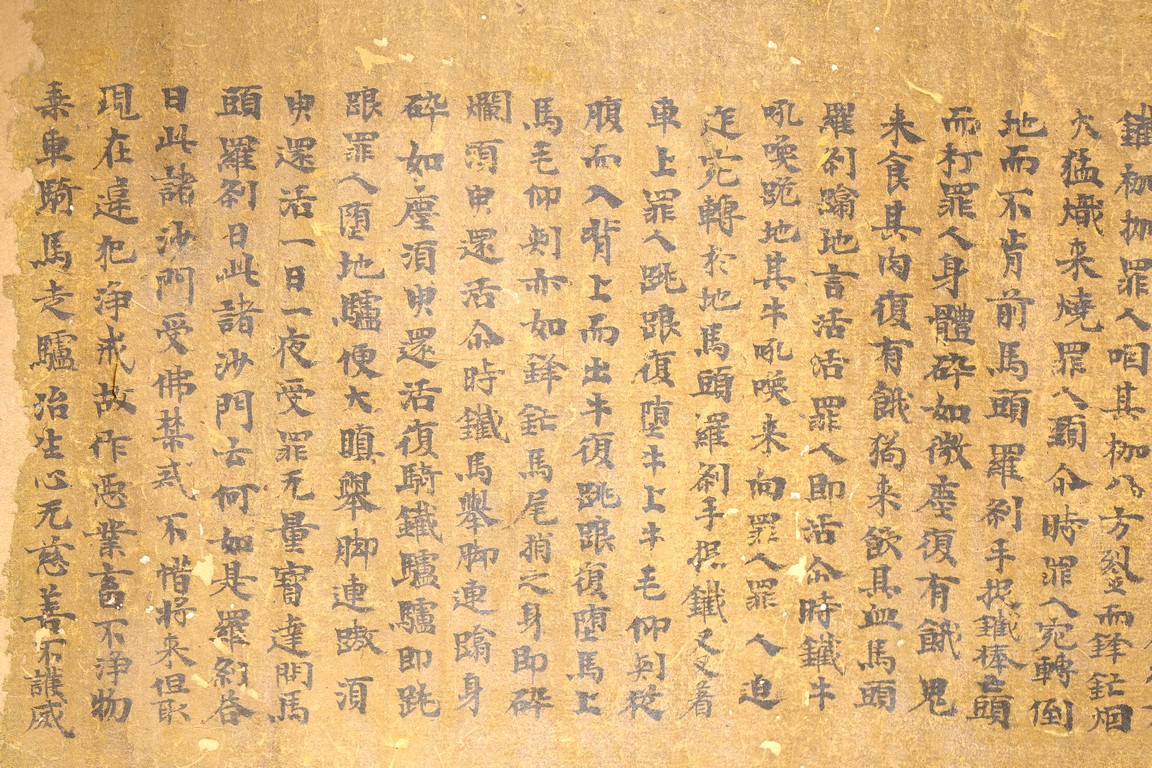 鐵枷枷罪人咽其枷八方剡出而鋒鋩烟
火猛熾来燒罪人頭尒時罪人宛轉倒
地而不肯前馬頭羅刹手捉鐵棒亡頭
而打罪人身體碎如微塵復有餓鬼
来食其肉復有餓狗来飲其血馬頭
羅刹踰地言活活罪人即活尒時鐵牛
吼喚跪地其牛吼喚来向罪人罪人迫
迮宛轉於地馬頭羅刹手捉鐵叉叉着
車上罪人跳踉復堕牛上牛毛仰刾從
腹而入背上而出牛復跳踉復堕馬上
馬毛仰刾亦如鋒鋩馬尾捎之身即碎
爛湏臾還活尒時鐵馬舉脚連蹹身
碎如塵湏臾還活復騎鐵驢驢即跳
踉罪人堕地驢便大瞋舉脚連蹴湏
臾還活一日一夜受罪无量寶達問馬
頭羅刹曰此諸沙門云何如是羅刹荅
曰此諸沙門受佛禁戒不惜将来但取
現在違犯淨戒故作惡業畜不淨物
乗車騎馬走驢治生心无慈善不護威